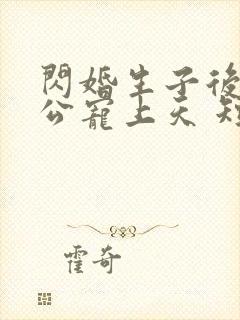 閃婚生子後
公寵上天 短
霍奇